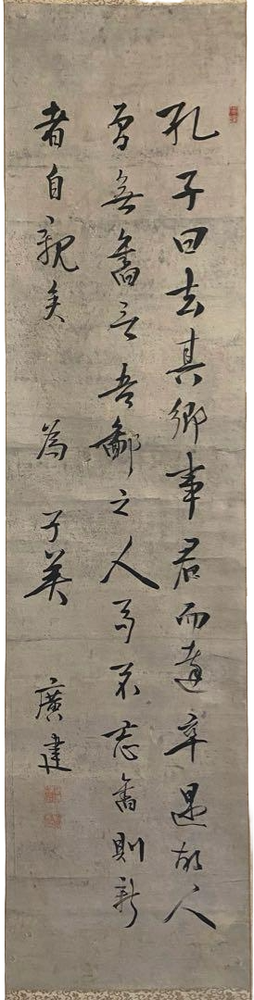 孔子曰去其鄉事君而達卒遇故人
曾無舊言吾鄙之人而不忘舊則新
者自親矣 為 子英 廣建